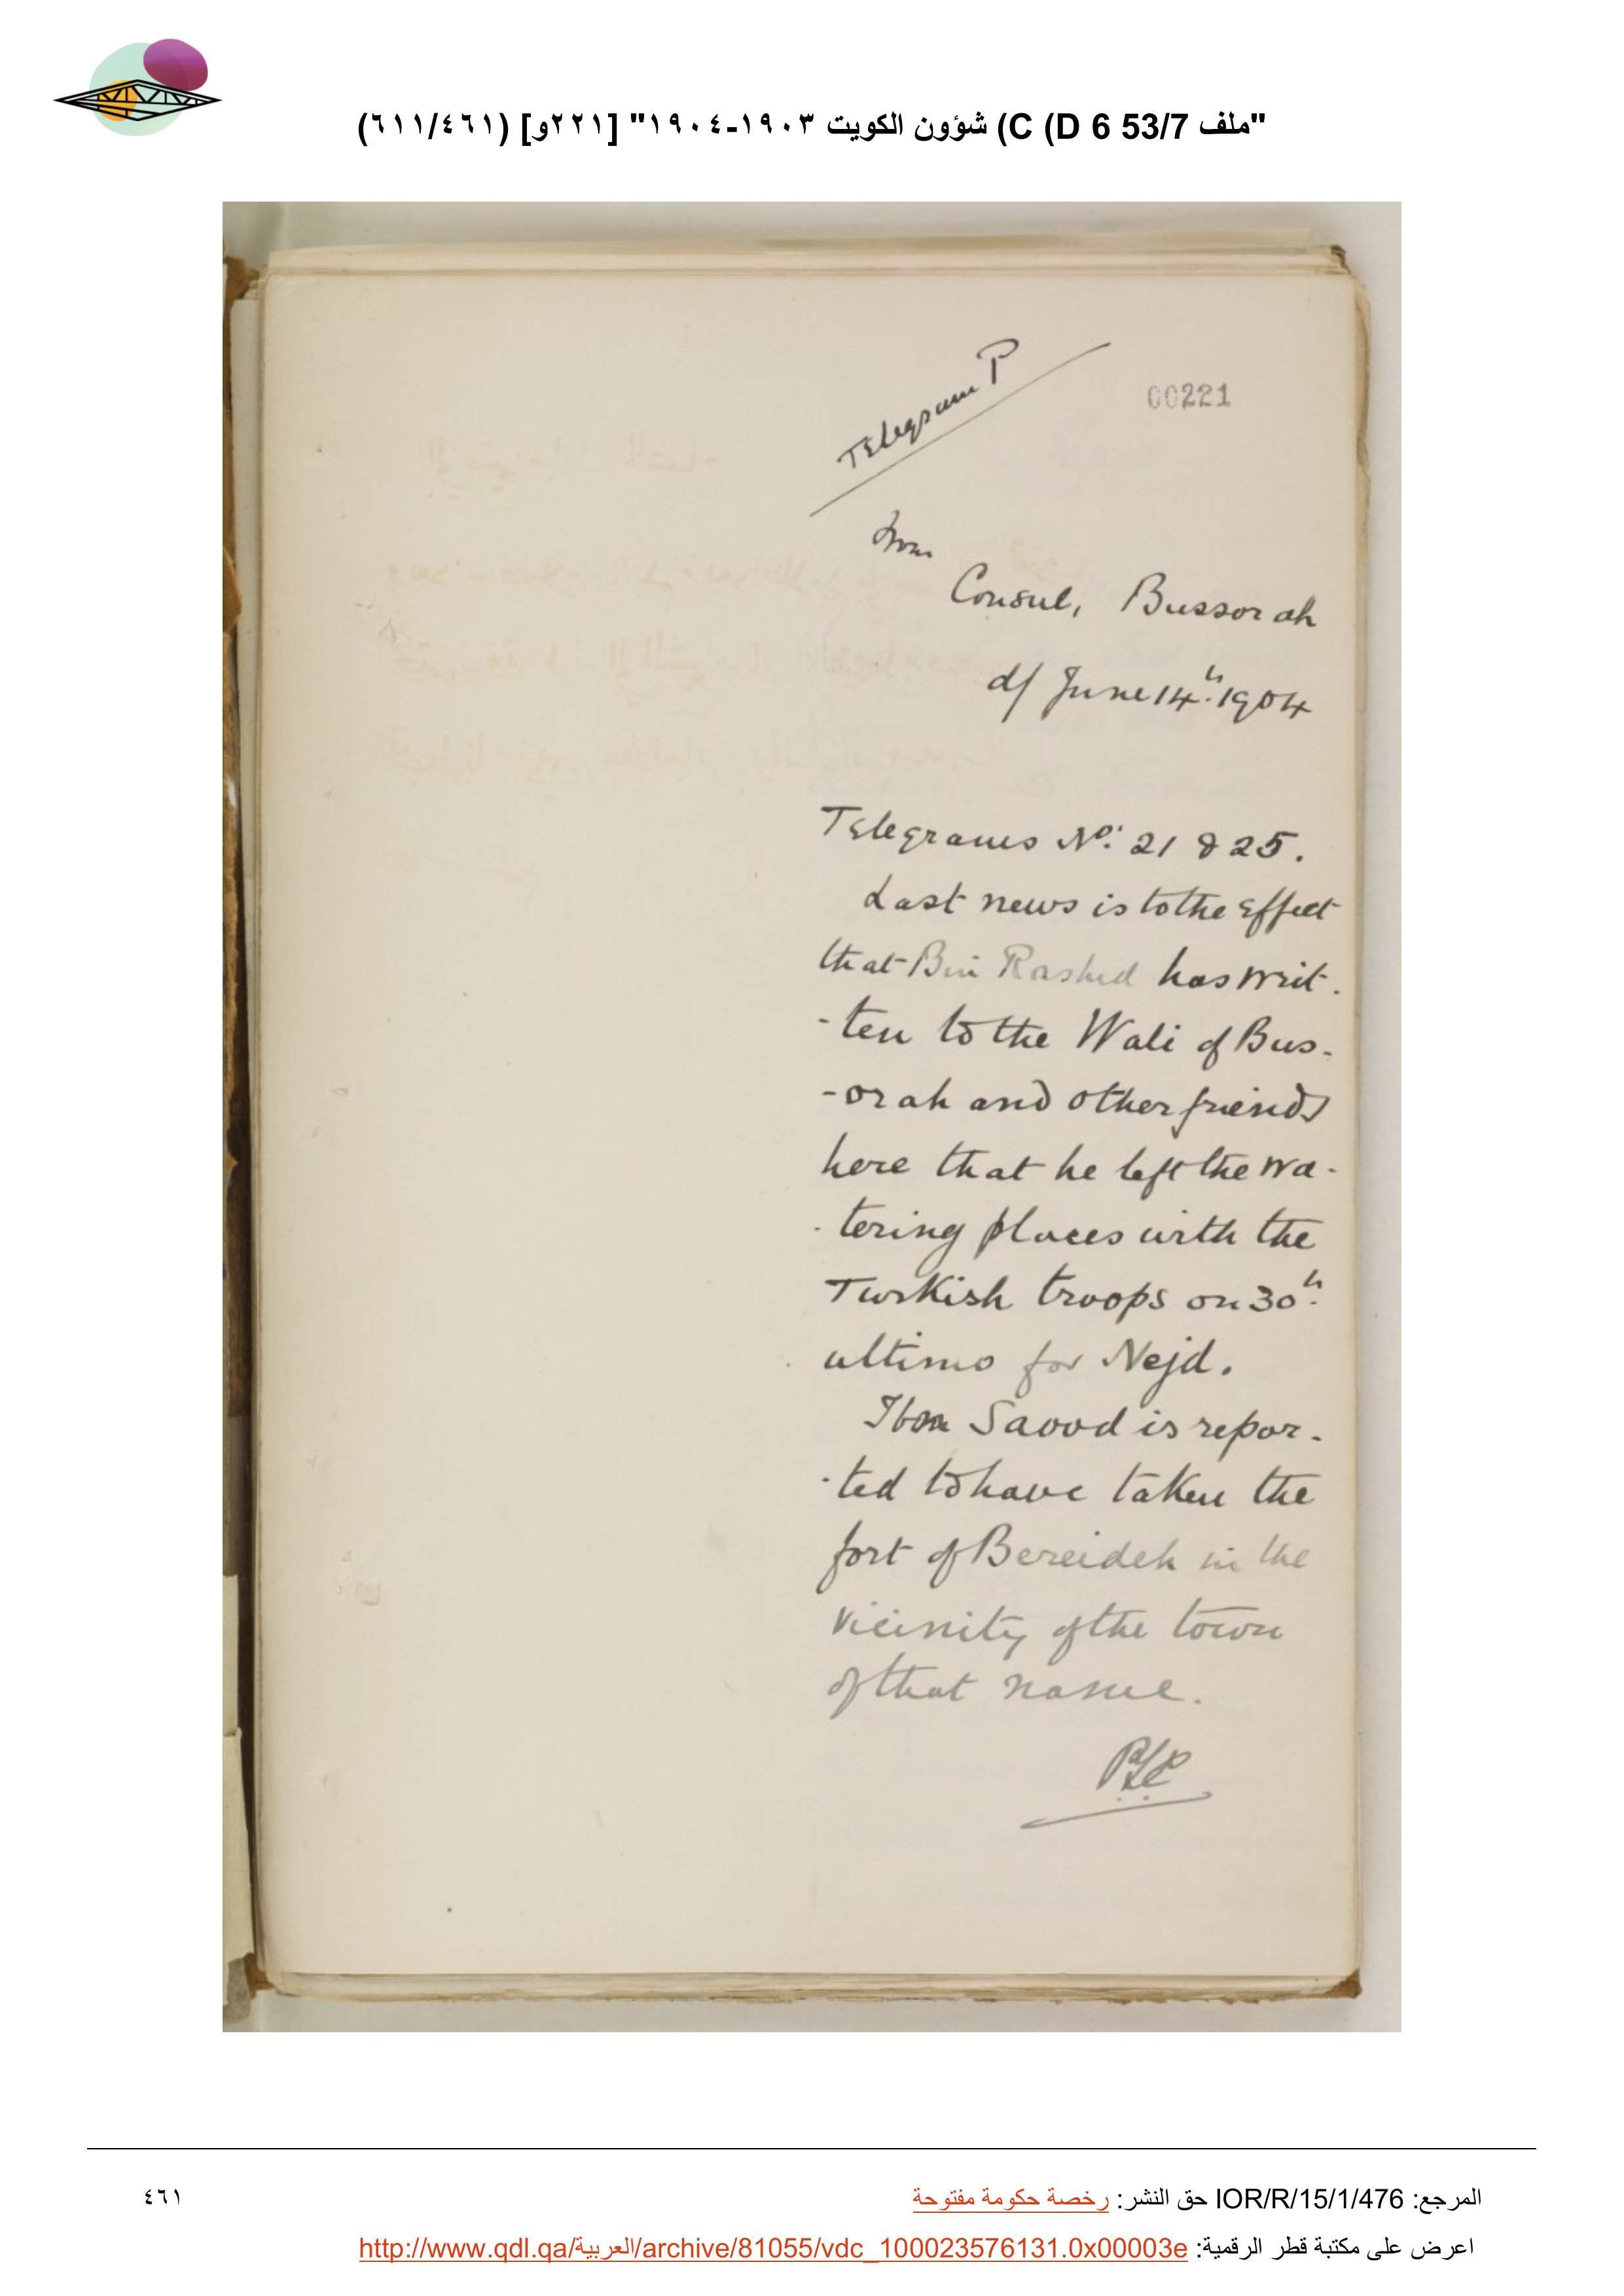 "ملف 53/7 C (D 6) شؤون الكويت ١٩٠٣-١٩٠٤" [٢٢١و] (٤٦١/٦١١)
Telegram P
00221
From
Consul, Bussorah
d/ June 14th. 1904
Telegrams No. 21 & 25.
Last news is to the effect
that Bin Rashid has writ-
-ten to the Wali of Bus-
-orah and other friends
here that he left the wa-
-tering places with the
Turkish troops on 30th.
ultimo for Nejd.
Ibn Saood is repor-
-ted to have taken the
fort of Bereideh in the
vicinity of the town
of that name.
المرجع: IOR/R/15/1/476 حق النشر: رخصة حكومة مفتوحة
٤٦١
اعرض على مكتبة قطر الرقمية: http://www.qdl.qa/العربية/archive/81055/vdc_100023576131.0x00003e